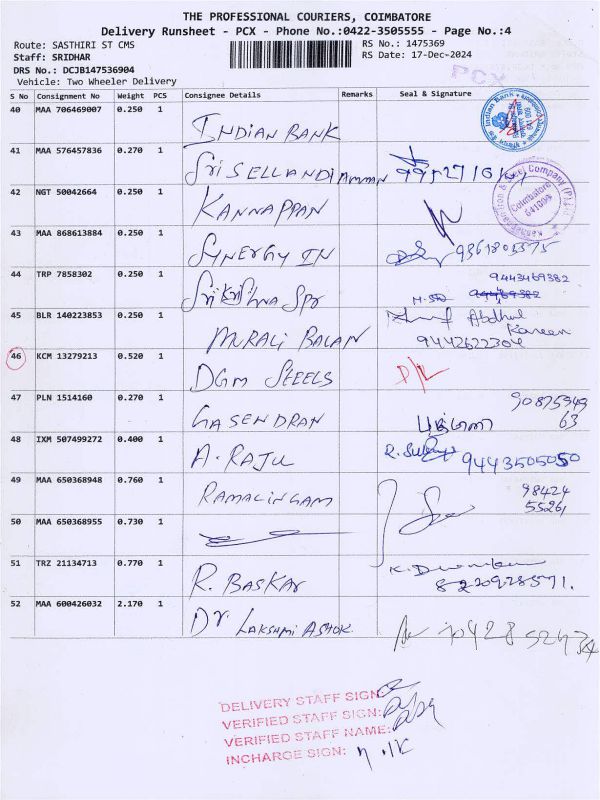 THE PROFESSIONAL COURIERS, COIMBATORE
Delivery Runsheet - PCX - Phone No.:0422-3505555 - Page No.:4
Route: SASTHIRI ST CMS RS No.: 1475369
Staff: SRIDHAR RS Date: 17-Dec-2024
DRS No.: DCJB147536904 PCX
Vehicle: Two Wheeler Delivery
S No Consignment No Weight PCS Consignee Details Remarks Seal & Signature
40 MAA 706469007 0.250 1 INDIAN BANK
41 MAA 576457836 0.270 1 Sri SELLANDIAMMAN
42 NGT 50042664 0.250 1 KANNAPPAN
Coimbatore
641009
43 MAA 868613884 0.250 1 SYNERGY IN 9361803575
44 TRP 7858302 0.250 1 Sri Krishna Spr 9443469382
45 BLR 140223853 0.250 1 MURALI BALAN Abdhul Kareem
9442622304
46 KCM 13279213 0.520 1 DGM STEELS D/L
47 PLN 1514160 0.270 1 GASENDRAN 90875949
63
48 IXM 507499272 0.400 1 A. RAJU 9443505050
49 MAA 650368948 0.760 1 RAMALINGAM 98424
55261
50 MAA 650368955 0.730 1
51 TRZ 21134713 0.770 1 R. BASKAR
8220928571.
52 MAA 600426032 2.170 1 Dr. LAKSHMI ASHOK.
DELIVERY STAFF SIGN:
VERIFIED STAFF SIGN:
VERIFIED STAFF NAME:
INCHARGE SIGN: